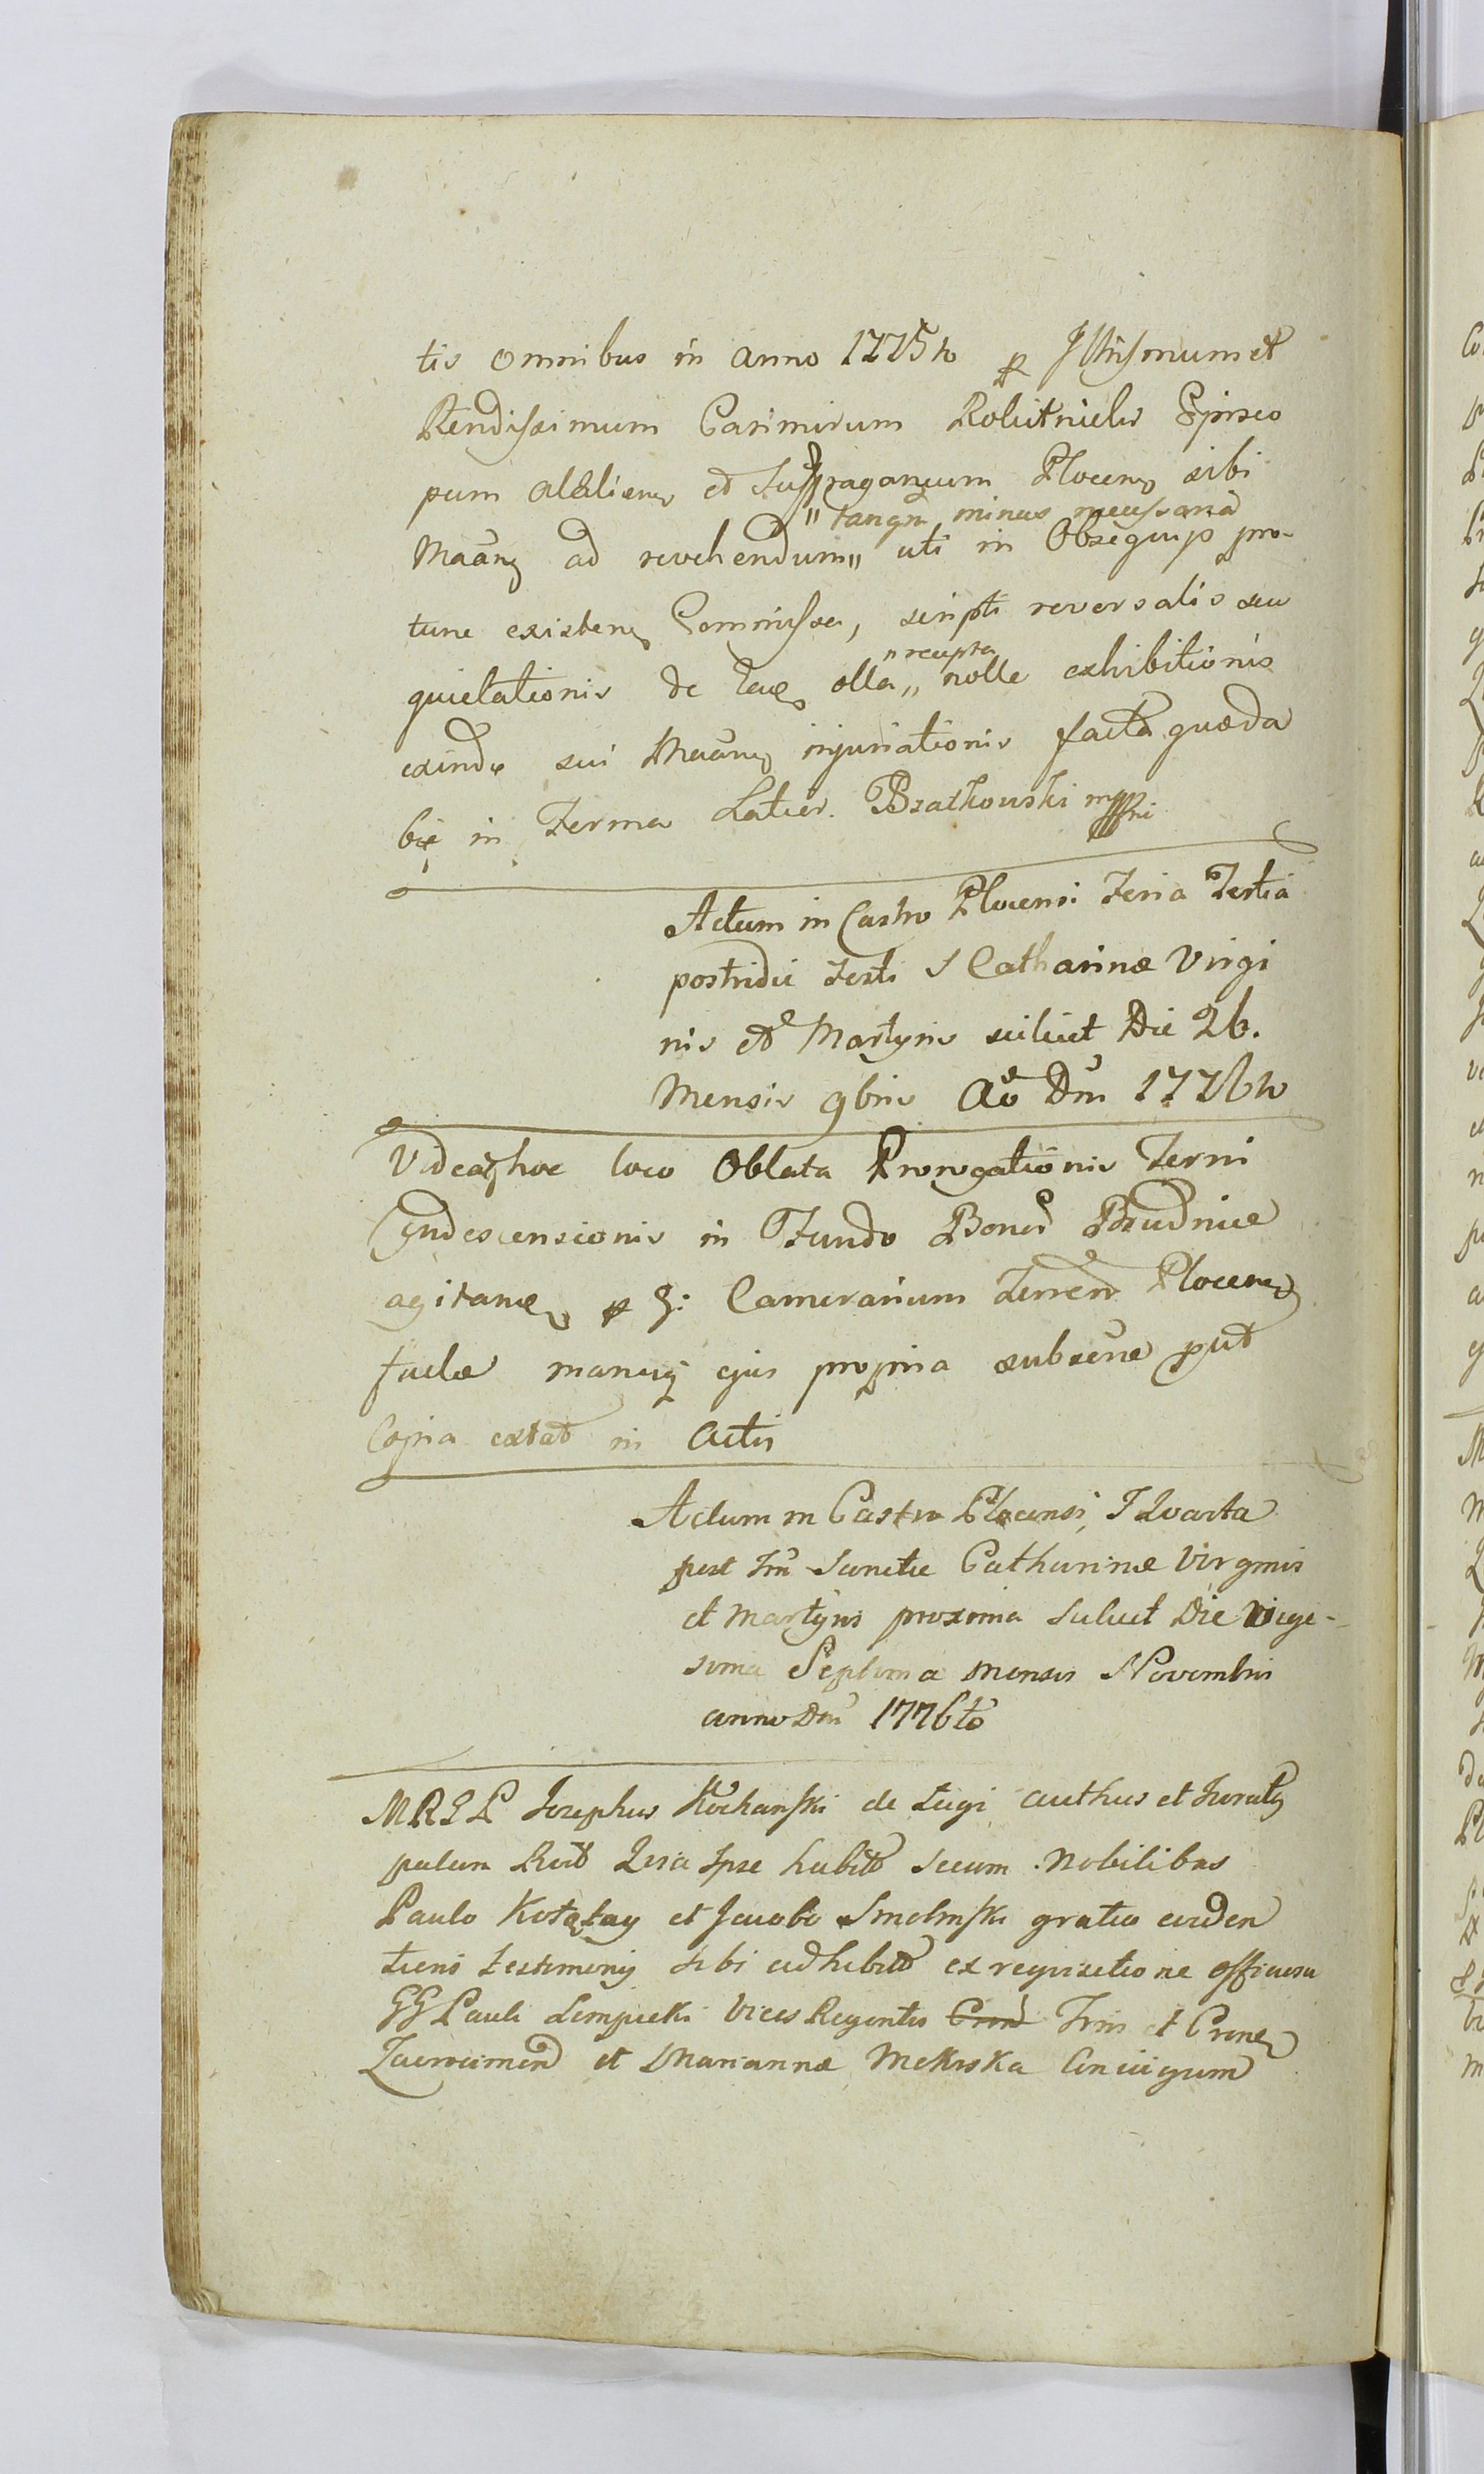 tis omnibus in anno 1775to p Illrissmum et
Rendissimum Casimirum Rokitnicki Episco
pum et Suffraganeum Plocens sibi
"tanqm minus necessaria
ad revehendum" uti in Obsequijs pro-
tunc existens Commissa, scripti reversalis seu
"recepta
quietationis de olla" nolle exhibitionis
exinde sui injuriationis facta quæda
bię in Ferma Later. Bratkowski mppri
Actum in Castro Plocensi Feria Tertia
postridie Festi S Catharinæ Virgi
nis et Martyris scilicet Die 26.
Mensis 9bris Ao Dni 1776to
Videatq hoc loco Oblata Prorogationis Termi
Condescensionis in Fundo Bonor Brudnice
agitan p G: Camerarium Terren Plocens
factæ manuq ejus propria subscræ put
Copia extat in Actis
Actum in Castro Plocensi F Quarta
post Ftm Sanctæ Catharinæ Virginis
et Martyris proxima Scilicet Die Vige-
sima Septima mensis Novembris
anno Dni 1776to
MRGP Josephus Kochanski de Lugi authus et Juratq
palam Recit Quia Ipse habito secum Nobilibus
Paulo et Jacobo Smolinski gratia eviden
tioris testimonij sibi adhibito ex requisitione officiosa
GG Pauli Lempicki Vices Regentis Cren Tris et Crene
Zawcrimen et Mariannæ Mekrska Coniugum